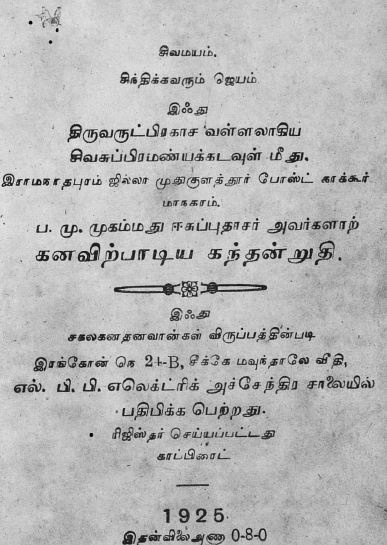 சிவமயம்.
சிந்திக்கவரும் ஜெயம்
இஃது
திருவருட்பிரகாச வள்ளலாகிய
சிவசுப்பிரமண்யக்கடவுள் மீது.
இராமநாதபுரம் ஜில்லா முதுகுளத்தூர் போஸ்ட் காக்கூர்
மாநகரம்.
ப. மு. முகம்மது ஈசுப்புதாசர் அவர்களாற்
கனவிற்பாடிய கந்தன்றுதி.
இஃது
சகலகனதனவான்கள் விருப்பத்தின்படி
இரங்கோன் நெ 24-B, சீக்கே மவுந்தாலே வீதி,
எல். பி. பி. எலெக்ட்ரிக் அச்சேந்திர சாலையில்
பதிபிக்க பெற்றது.
ரிஜிஸ்தர் செய்யப்பட்டது
காட்பிரைட்
1925
இதன்விலைஅணா 0-8-0